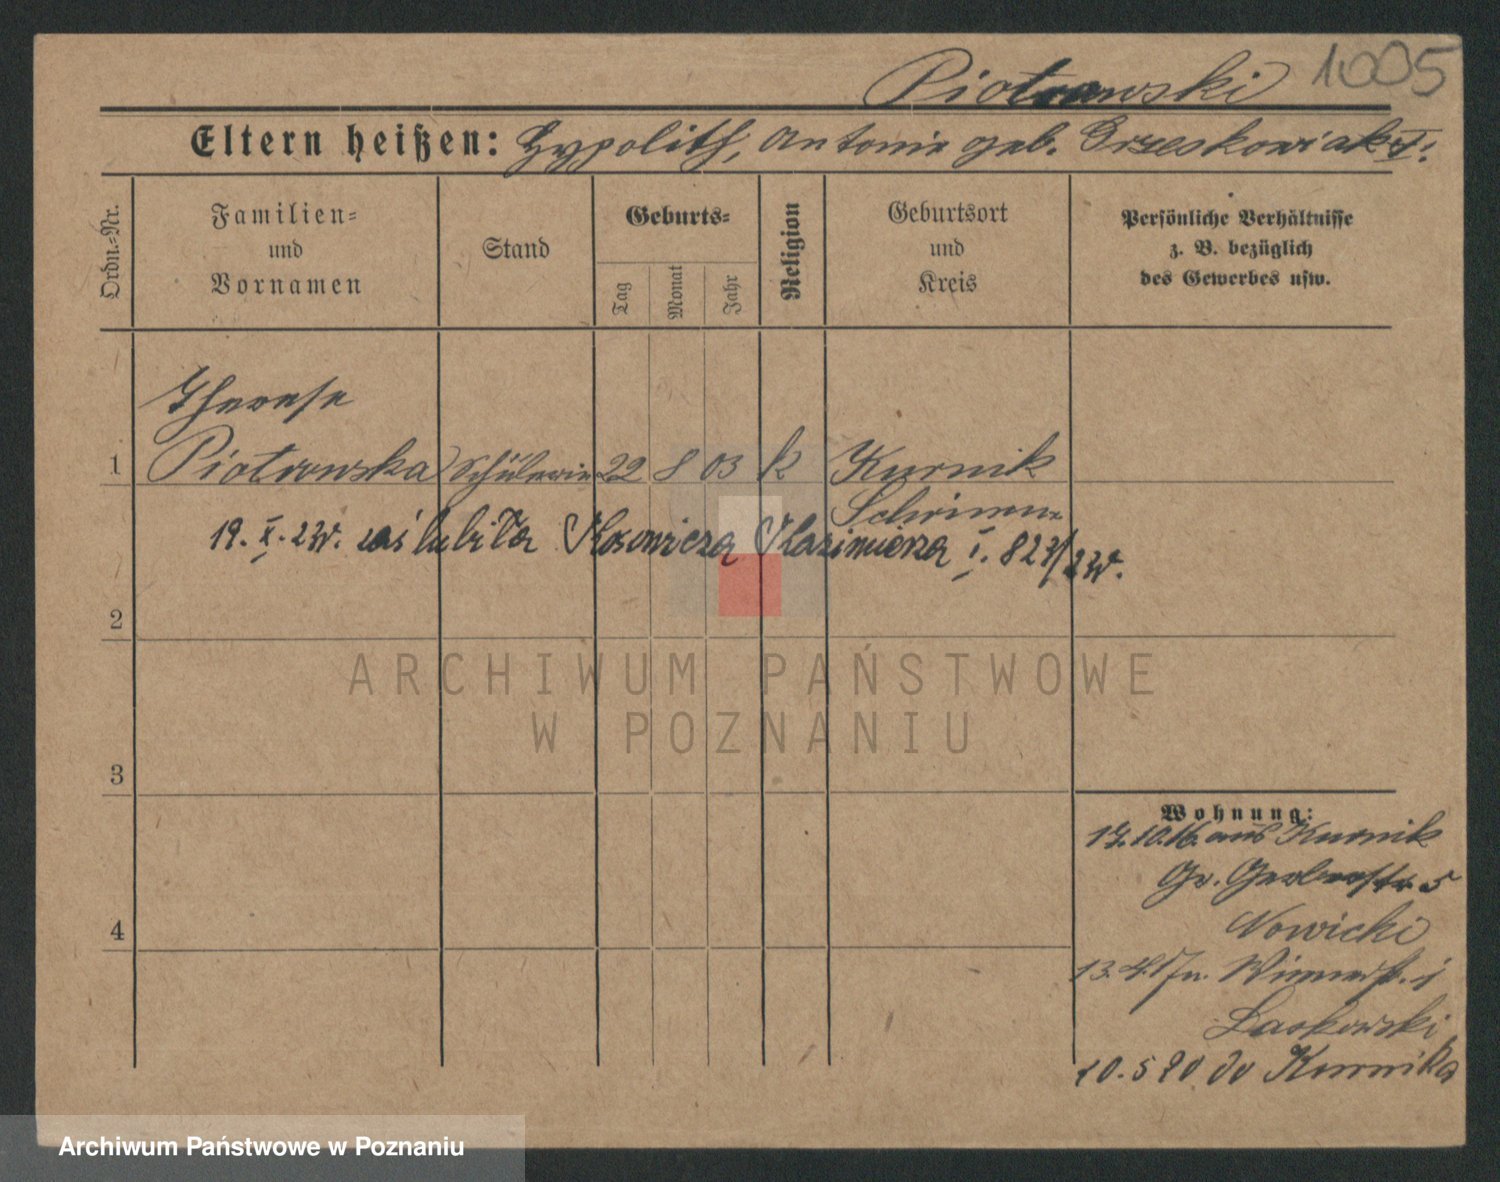 Piotrowski 1005
Eltern heißen: Hypolith, Antonie geb. Grzeskowiak
Ordn.=Nr.
Familien=
und
Vornamen
Stand
Geburts=
Tag
Monat
Jahr
Religion
Geburtsort
und
Kreis
Persönliche Verhältnisse
z. B. bezüglich
des Gewerbes usw.
Therese
1 Piotrowska Schülerin 22 8 03 k Kurnik
Schrimm
19. X. 23r. zaślubiła Kosowicza Kazimierza 823/23r.
2
3
4
ARCHIWUM PAŃSTWOWE
W POZNANIU
Wohnung:
17.10.16. aus Kurnik
Gr. Gerberstr. 5
Nowicki
13.4.17 n.
Laskowski
10.5 20 do Kurnika
Archiwum Państwowe w Poznaniu